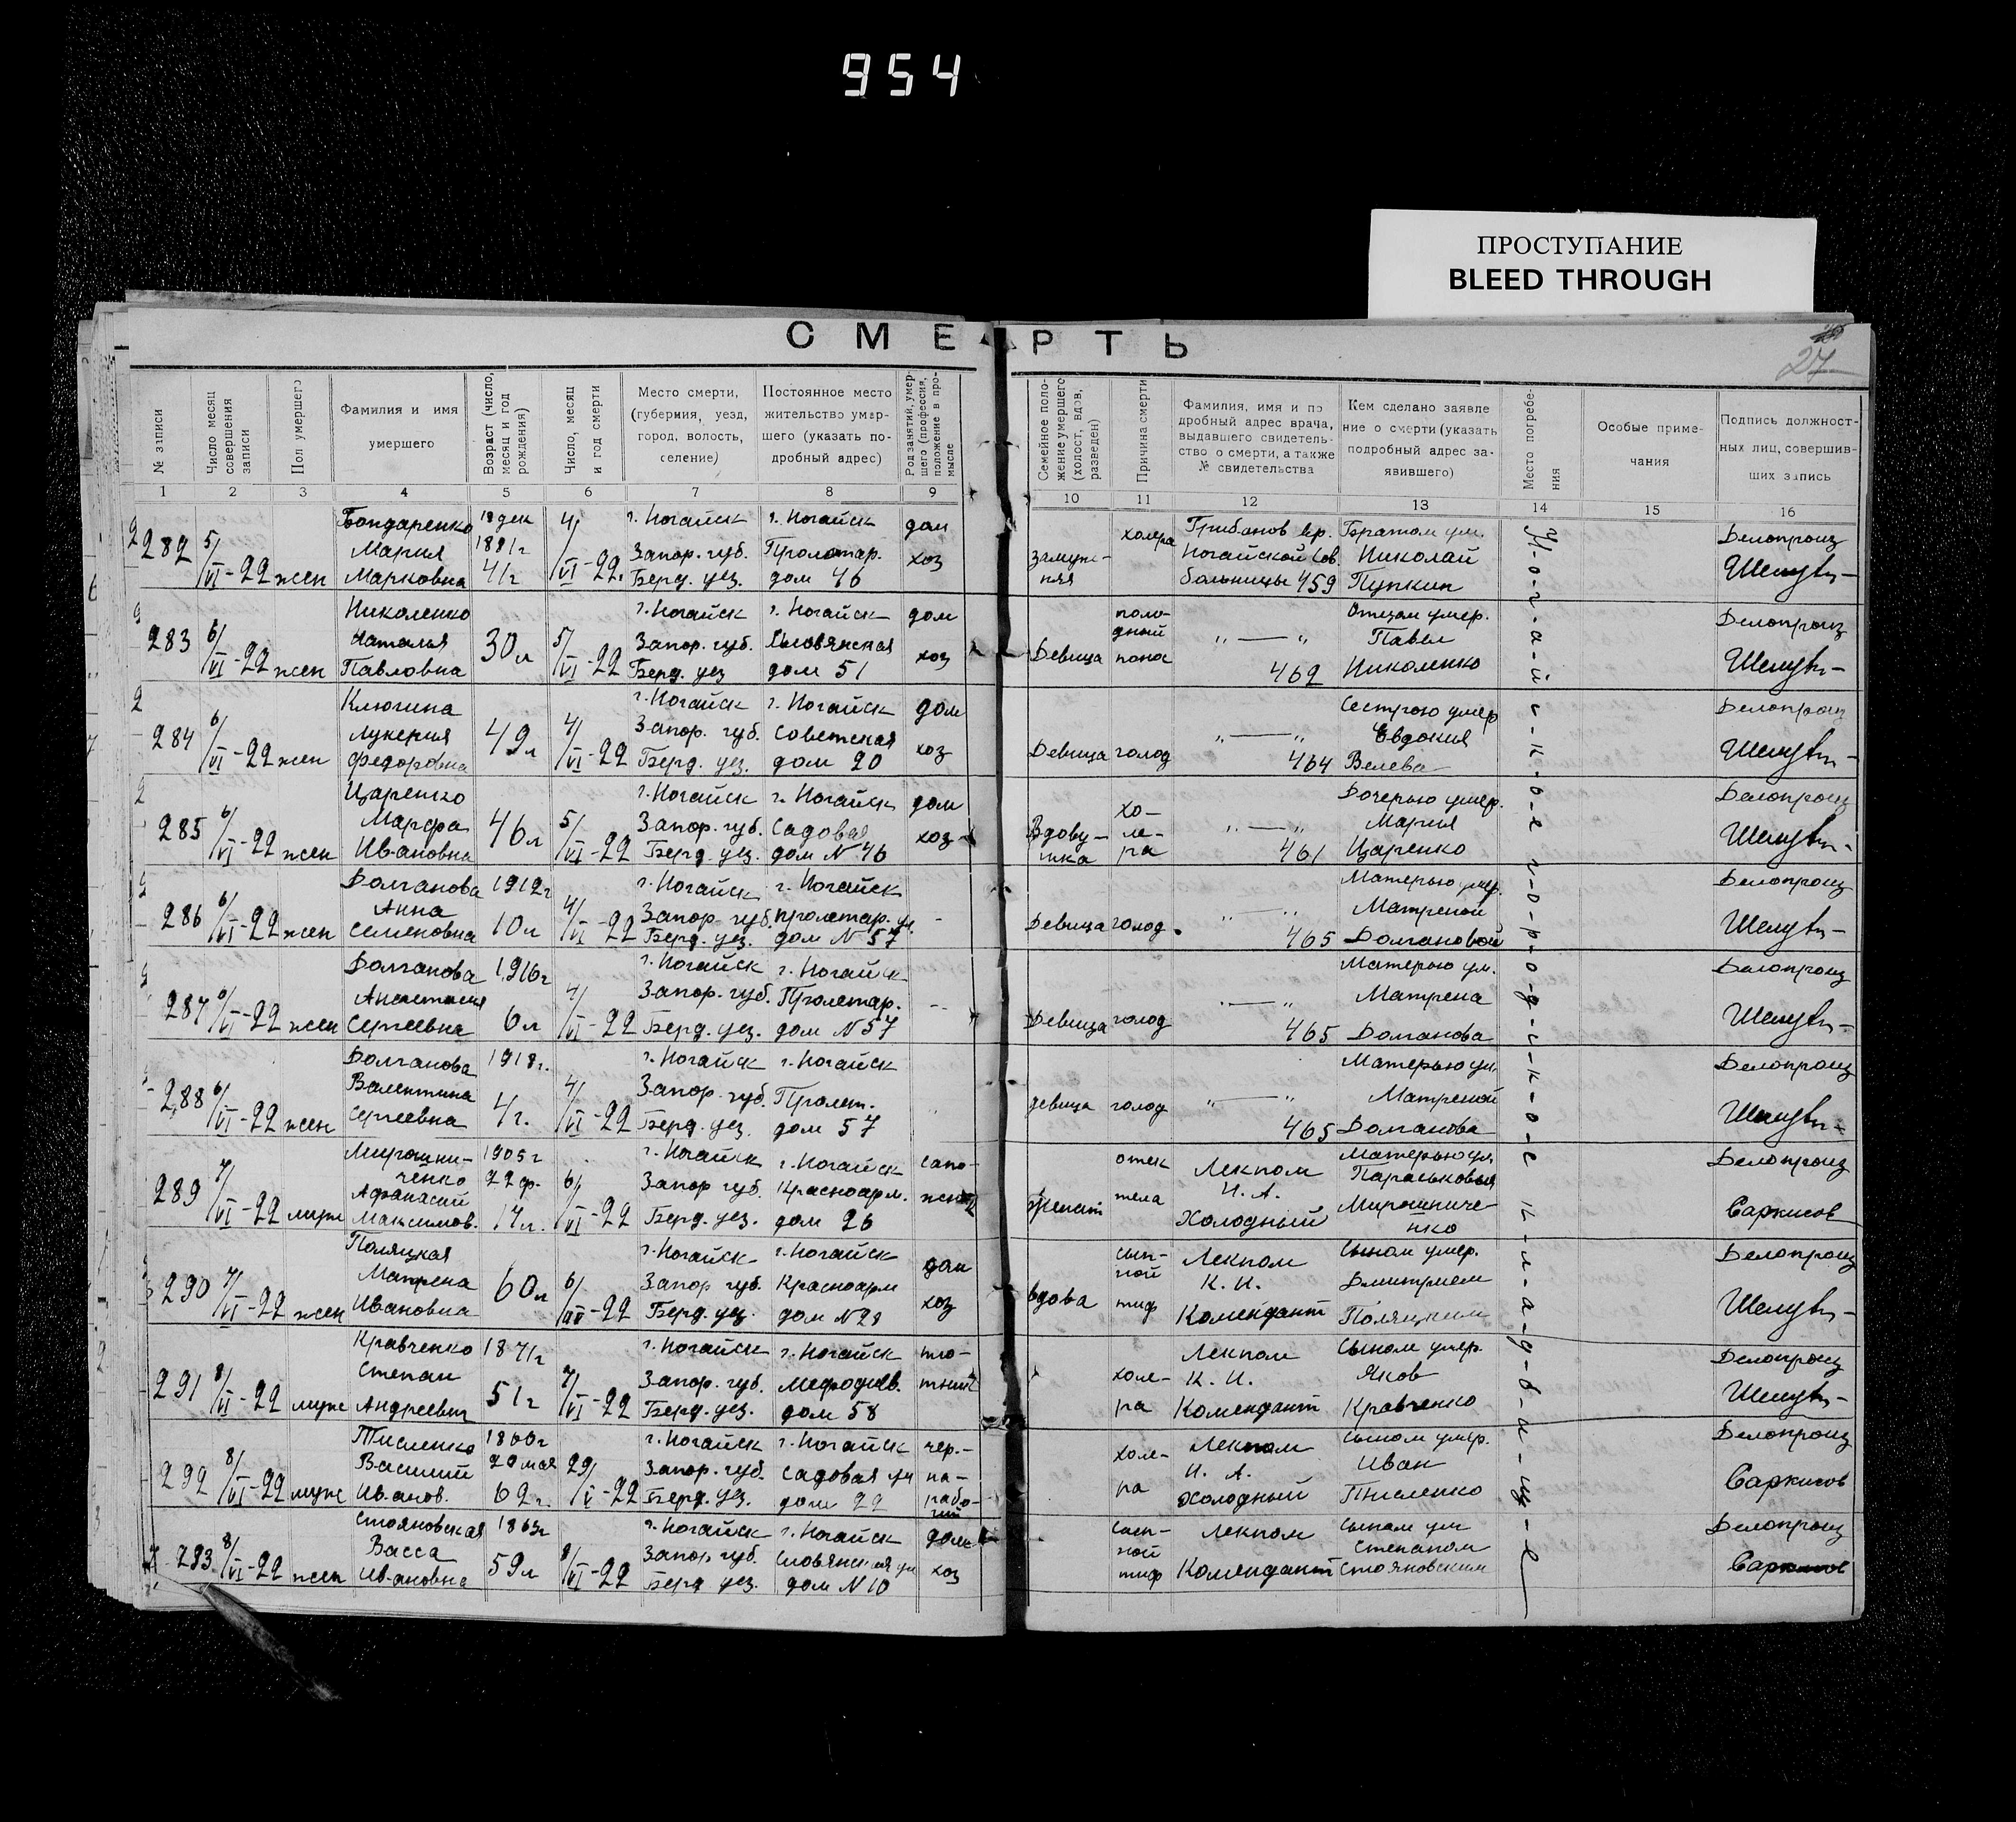 954
ПРОСТУПАНИЕ
BLEED THROUGH
СМЕРТЬ
27
№ записи
Число месяц совершения записи
Пол умершего
Фамилия и имя умершего
Возраст (число, месяц и год рождения)
Число, месяц и год смерти
Место смерти, (губерния, уезд, город, волость, селение)
Постоянное место жительство умершего (указать подробный адрес)
Род занятий, умершего (профессия, положение в промысле
Семейное положение умершего (холост, вдов, разведен)
Причина смерти
Фамилия, имя и подробный адрес врача, выдавшего свидетельство о смерти, а также № свидетельства
Кем сделано заявление о смерти (указать подробный адрес заявившего)
Место погребения
Особые примечания
Подпись должностных лиц, совершивших запись
1 2 3 4 5 6 7 8 9 10 11 12 13 14 15 16
282 5/VI-22 жен Бондаренко Мария Марковна 1881г 41г 4/VI-22. г. Ногайск Запор. губ. Берд. уез. г. Ногайск Пролетар. дом 46 дом хоз замужняя холера Грибанов вр. Ногайской Сов. больницы 459 Братом ум. Николай Пупкин Делопроиз
283 6/VI-22 жен Николенко Наталья Павловна 30л 5/VI-22 г. Ногайск Запор. губ. Берд. уез г. Ногайск дом 51 дом хоз Девица понос „ — „ 462 Отцом умер. Павел Николенко Делопроиз
284 6/VI-22 жен Клюгина Лукерия Федоровна 49л 4/VI-22 г. Ногайск Запор. губ. Берд. уез. г. Ногайск Советская дом 20 дом хоз Девица голод „ — „ 464 Сестрою умер Евдокия Велева Делопроиз
285 6/VI-22 жен Царенко Марфа Ивановна 46л 5/VI-22 г. Ногайск Запор. губ. Берд. уез. г. Ногайск Садовая дом N 46 дом хоз Вдовушка холера „ — „ 461 Дочерью умер. Мария Царенко Делопроиз
286 6/VI-22 жен Долганова Анна Семеновна 1912г 10л 4/VI-22 г. Ногайск Запор. губ. Берд. уез. г. Ногайск Пролетар. ул. дом N 57 - Девица голод „ — „ 465 Матерью умер. Матреной Долгановой Делопроиз
287 6/VI-22 жен Долганова Анастасия Сергеевна 1916г 6л 4/VI-22 г. Ногайск Запор. губ. Берд. уез. г. Ногайск Пролетар. дом N 57 - Девица голод „ — „ 465 Матерью ум. Матрена Долганова Делопроиз
288 6/VI-22 жен Долганова Валентина Сергеевна 1918г. 4г. 4/VI-22 г. Ногайск Запор. губ. Берд. уез. г. Ногайск Пролет. дом 57 „ девица голод „ — „ 465 Матерью ум. Матреной Долганова Делопроиз
289 7/VI-22 муж Мирошниченко Афанасий Максимов. 1905г 22 ф. 17л. 6/VI-22 г. Ногайск Запор губ. Берд. уез. г. Ногайск Красноарм. дом 26 сапожник женат отек тела Лекпом И. А. Холодный Матерью ум. Параськовья Мирошниченко Делопроиз Саркисов
290 7/VI-22 жен Поляцкая Матрена Ивановна 60л 6/VI-22 г. Ногайск Запор губ. Берд. уез. г. Ногайск Красноарм дом N28 дом хоз вдова сыпной тиф Лекпом К. И. Комендант Сыном умер. Дмитрием Поляцким Делопроиз
291 8/VI-22 муж Кравченко Степан Андреевич 1871г 51г 7/VI-22 г. Ногайск Запор. губ. Берд. уез. г. Ногайск Мефодиев. дом 58 плотник холера Лекпом К. И. Комендант Сыном умер. Яков Кравченко Делопроиз
292 8/VI-22 муж Тисленко Василий Иванов. 1860г 20 мая 62г. 29/V-22 г. Ногайск Запор. губ. Берд. уз. г. Ногайск Садовая ул дом 22 чернорабочий холера Лекпом И. А. Холодный Сыном умер. Иван Тисленко Делопроиз Саркисов
293 8/VI-22 жен Стояновская Васса Ивановна 1863г 59л 8/VI-22 г. Ногайск Запор губ. Берд уез. г. Ногайск Словянская ул дом N 10 дом хоз сыпной тиф Лекпом Комендант сыном ум Степаном Стояновским Делопроиз Саркисов
Н-о-г-а-й-с-к-о-е г-о-р-о-д-с-к-о-е к-л-а-д-б-и-щ-е